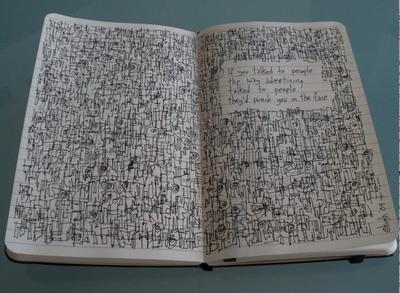 If you talked to people
the way advertising
talked to people
they'd punch you in the face